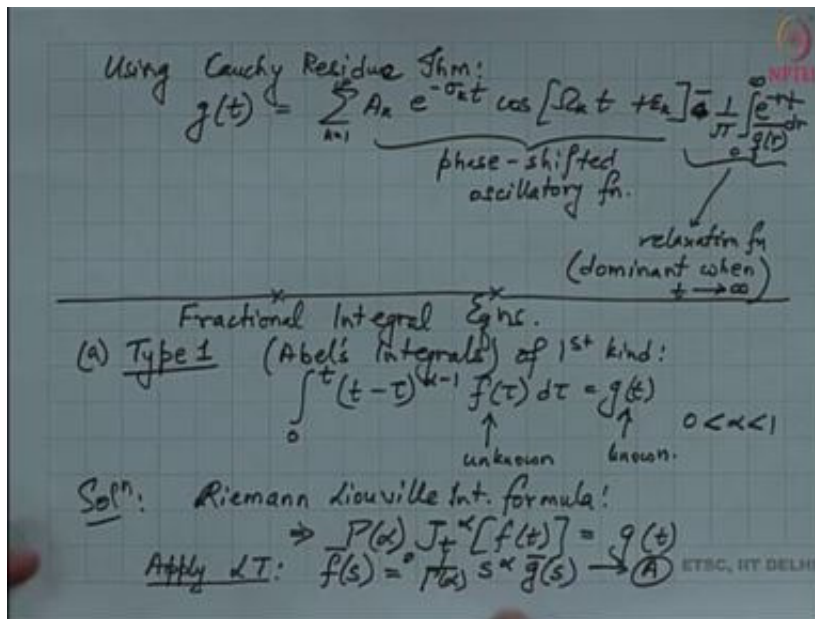 Using Cauchy Residue Thm:
NPTEL
g(t) = ∑_{k=1}^{n} A_k e^{-σ_k t} cos [Ω_k t + ε_k] - 1/π ∫_0^∞ e^{-rt}/g(r) dr
phase-shifted
oscillatory fn.
relaxation fn
(dominant when
t → ∞)
Fractional Integral Eqns.
(a) Type 1 (Abel's Integrals) of 1st kind:
∫_0^t (t-τ)^{α-1} f(τ) dτ = g(t)
0 < α < 1
unknown known.
Solⁿ: Riemann Liouville Int. formula!
⇒ Γ(α) ₀J_t^α [f(t)] = g(t)
Apply LT: f̄(s) = 1/Γ(α) s^α ḡ(s) → Ⓐ
ETSC, IIT DELHI